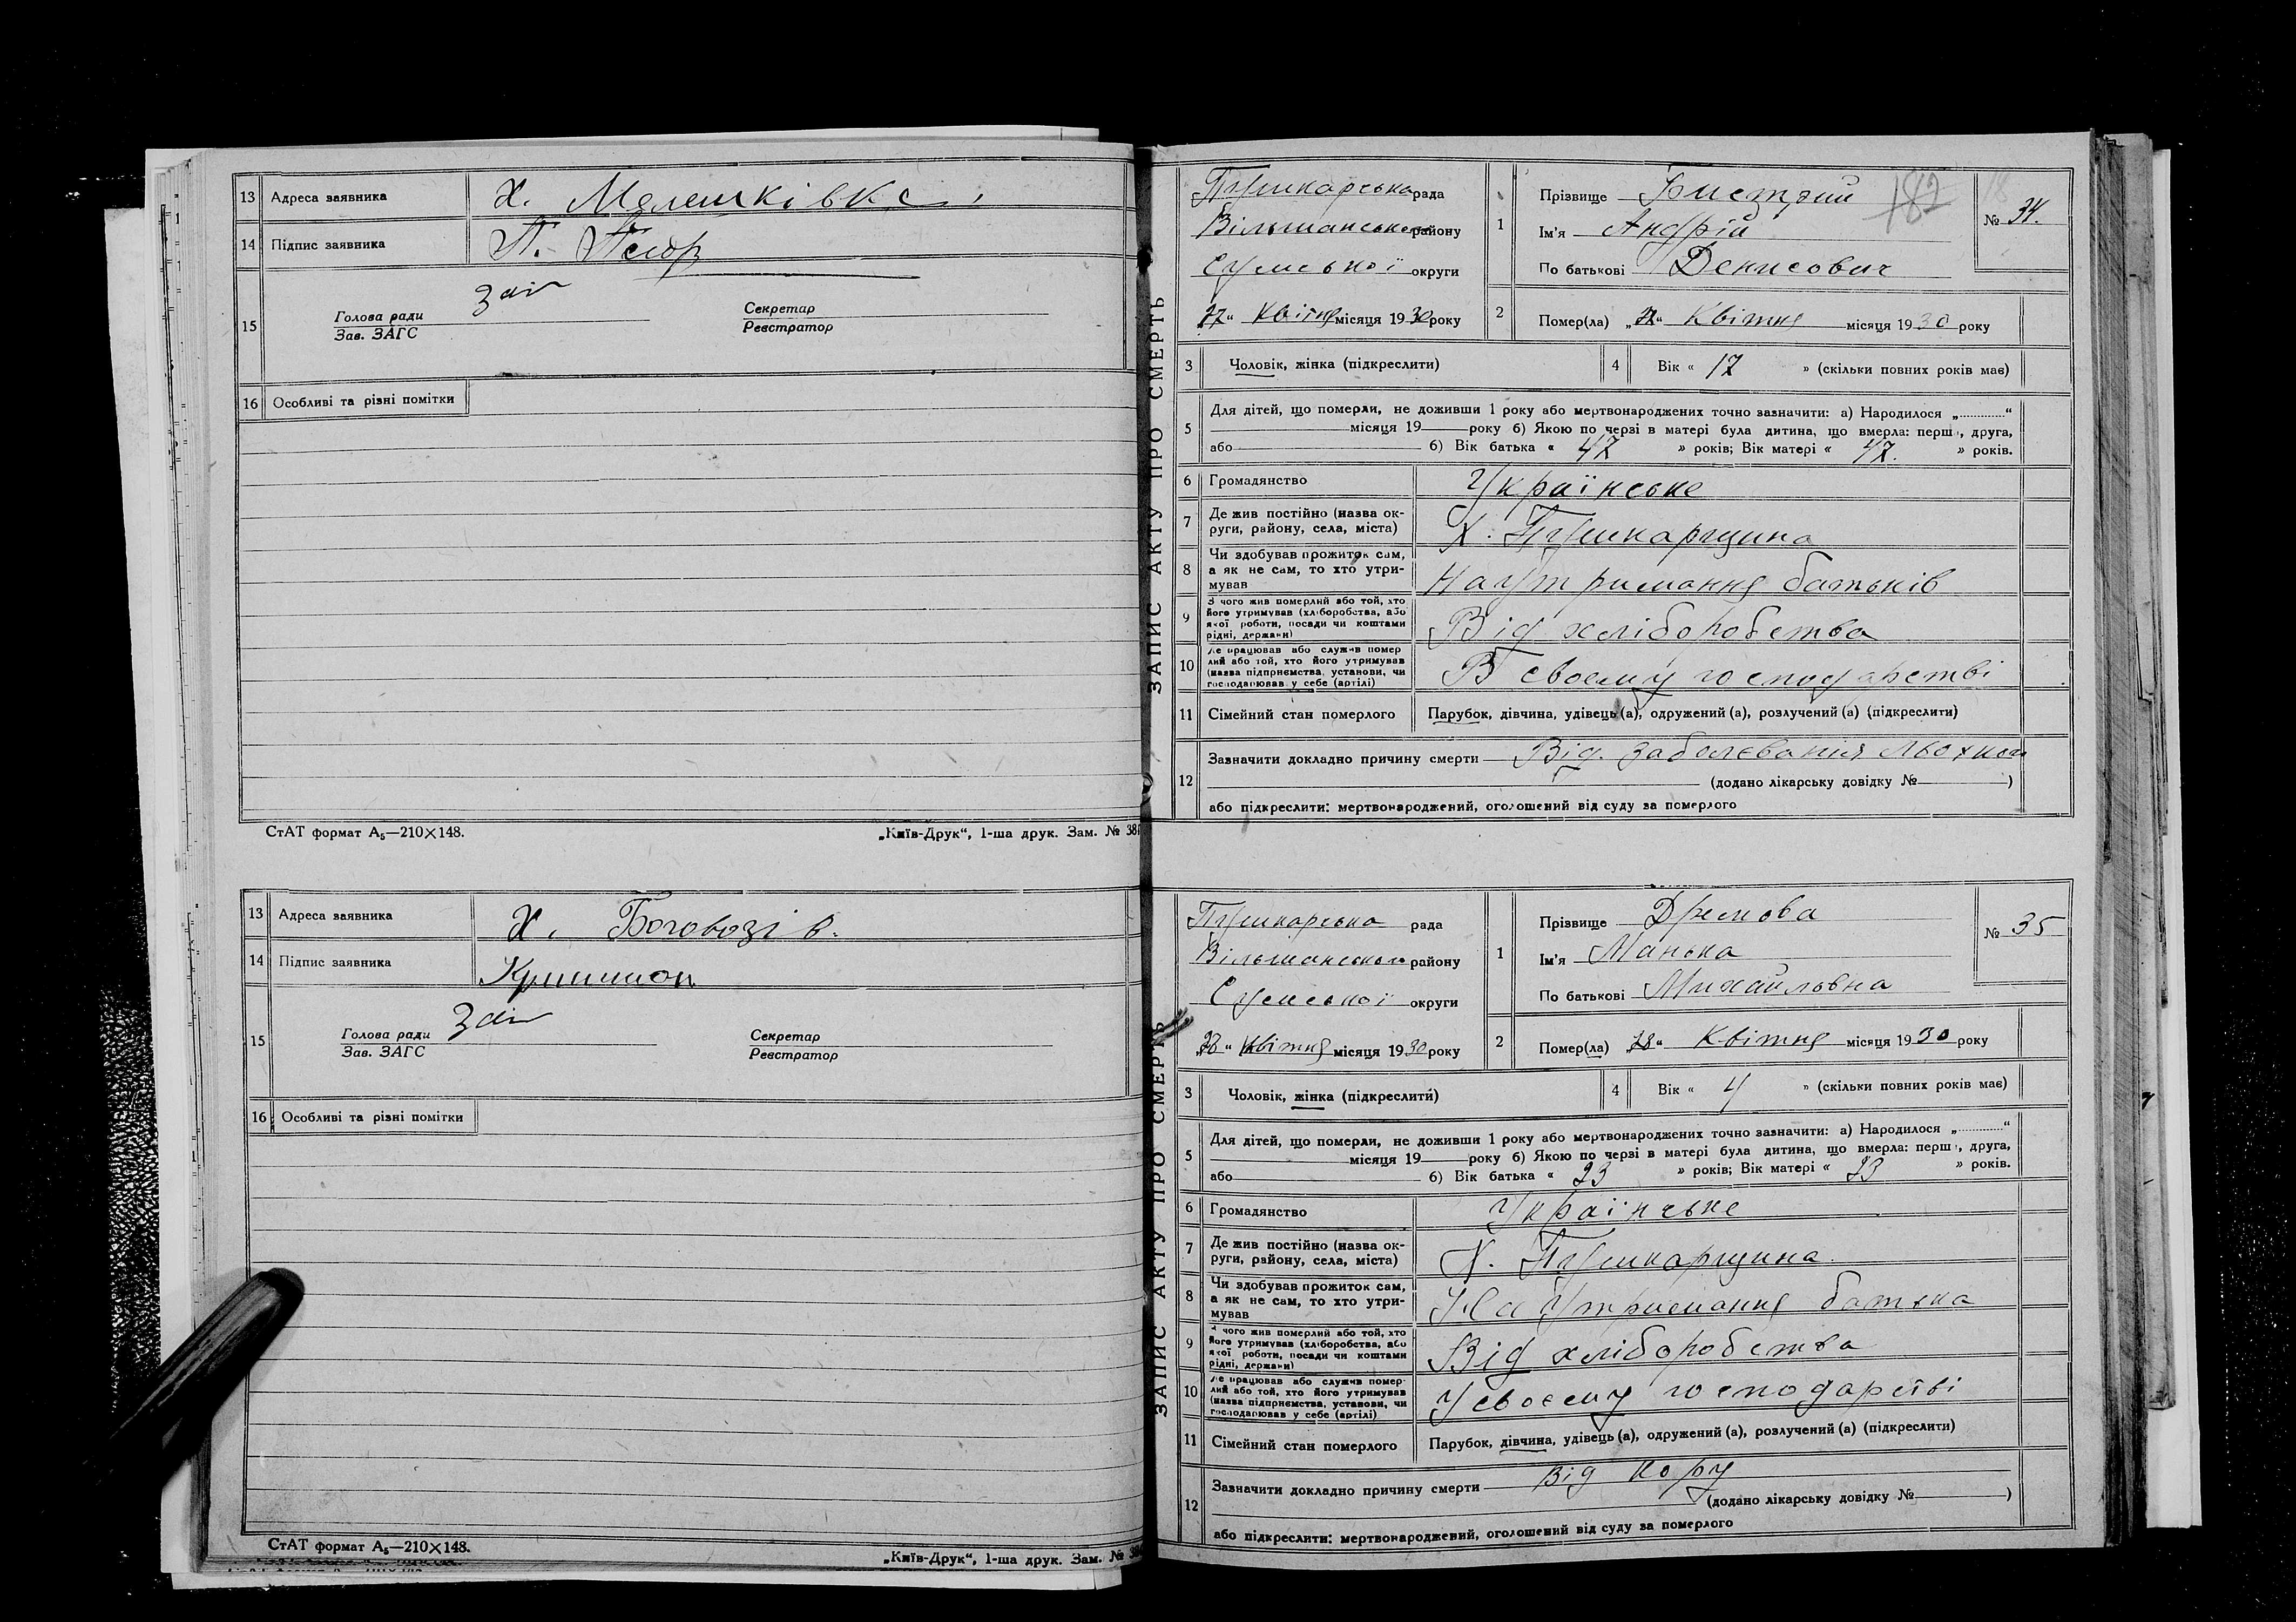 13 Адреса заявника Х. Мелешківка,
14 Підпис заявника П.
Заів
15 Голова ради Секретар
Зав. ЗАГС Реєстратор
16 Особливі та різні помітки
СтАТ формат А₅—210×148. „Київ-Друк“, 1-ша друк. Зам. № 38
13 Адреса заявника Х. Боговозів.
14 Підпис заявника
15 Голова ради Секретар
Зав. ЗАГС Реєстратор
16 Особливі та різні помітки
СтАТ формат А₅—210×148. „Київ-Друк“, 1-ша друк. Зам. №
ЗАПИС АКТУ ПРО СМЕРТЬ
Пушкарська рада
Вільшанського району
Сумської округи
27“ Квітня місяця 1930 року
1 Прізвище Бистрий 182
Ім'я Андрій
По батькові Денисович
№ 34.
2 Помер(ла) „27“ Квітня місяця 1930 року
3 Чоловік, жінка (підкреслити) 4 Вік « 17 » (скільки повних років має)
5 Для дітей, що померли, не доживши 1 року або мертвонароджених точно зазначити: а) Народилося „............“
місяця 19 року б) Якою по черзі в матері була дитина, що вмерла: перша, друга,
або б) Вік батька « 47 » років; Вік матері « 47. » років.
6 Громадянство Українське
7 Де жив постійно (назва округи, району, села, міста) Х. Пушкарщина
8 Чи здобував прожиток сам, а як не сам, то хто утримував На утримання батьків
9 З чого жив померлий або той, хто його утримував (хліборобства, або якої роботи, посади чи коштами рідні, держави) Від хліборобства
10 Де працював або служив померлий або той, хто його утримував (назва підприємства, установи, чи господарював у себе (артілі) В своєму господарстві
11 Сімейний стан померлого Парубок, дівчина, удівець (а), одружений (а), розлучений (а) (підкреслити)
12 Зазначити докладно причину смерти Від. заболєванія льохког
(додано лікарську довідку № )
або підкреслити: мертвонароджений, оголошений від суду за померлого
ЗАПИС АКТУ ПРО СМЕРТЬ
Пушкарська рада
Вільшанського району
Сумської округи
28“ Квітня місяця 1930 року
1 Прізвище Дремова
Ім'я Манька
По батькові Михайлівна
№ 35
2 Помер(ла) „28“ Квітня місяця 1930 року
3 Чоловік, жінка (підкреслити) 4 Вік « 4 » (скільки повних років має)
5 Для дітей, що померли, не доживши 1 року або мертвонароджених точно зазначити: а) Народилося „............“
місяця 19 року б) Якою по черзі в матері була дитина, що вмерла: перша, друга,
або б) Вік батька « 23 » років; Вік матері « 23 » років.
6 Громадянство Українське
7 Де жив постійно (назва округи, району, села, міста) Х. Пушкарщина
8 Чи здобував прожиток сам, а як не сам, то хто утримував На утримання батька
9 З чого жив померлий або той, хто його утримував (хліборобства, або якої роботи, посади чи коштами рідні, держави) Від хліборобства
10 Де працював або служив померлий або той, хто його утримував (назва підприємства, установи, чи господарював у себе (артілі) У своєму господарстві
11 Сімейний стан померлого Парубок, дівчина, удівець (а), одружений (а), розлучений (а) (підкреслити)
12 Зазначити докладно причину смерти Від кору
(додано лікарську довідку № )
або підкреслити: мертвонароджений, оголошений від суду за померлого